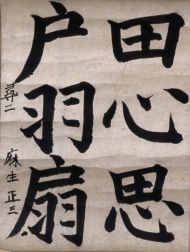 田心思
戸羽扇
尋二 麻生正三